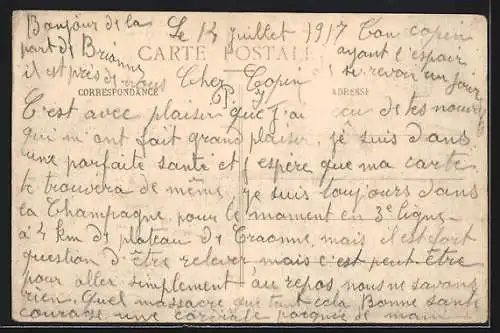 Bonjour de la
part de Brionne
il est près de nous
Le 14 juillet 1917
Ton copin
ayant l'espoir
se revoir un jour
CARTE POSTALE
Cher Copin
CORRESPONDANCE
ADRESSE
C'est avec plaisir que j'ai eu de tes nouv
qui m'ont fait grand plaisir, je suis dans
une parfaite santé et j'espère que ma carte
te trouvera de même, je suis toujours dans
la Champagne, pour le moment en 3e ligne
à 4 km de plateau de Craonne, mais il est fort
question d'être relever mais c'est peut-être
pour aller simplement au repos, nous ne savons
rien. Quel massacre que tout cela. Bonne santé
courage une cordiale poignée de main